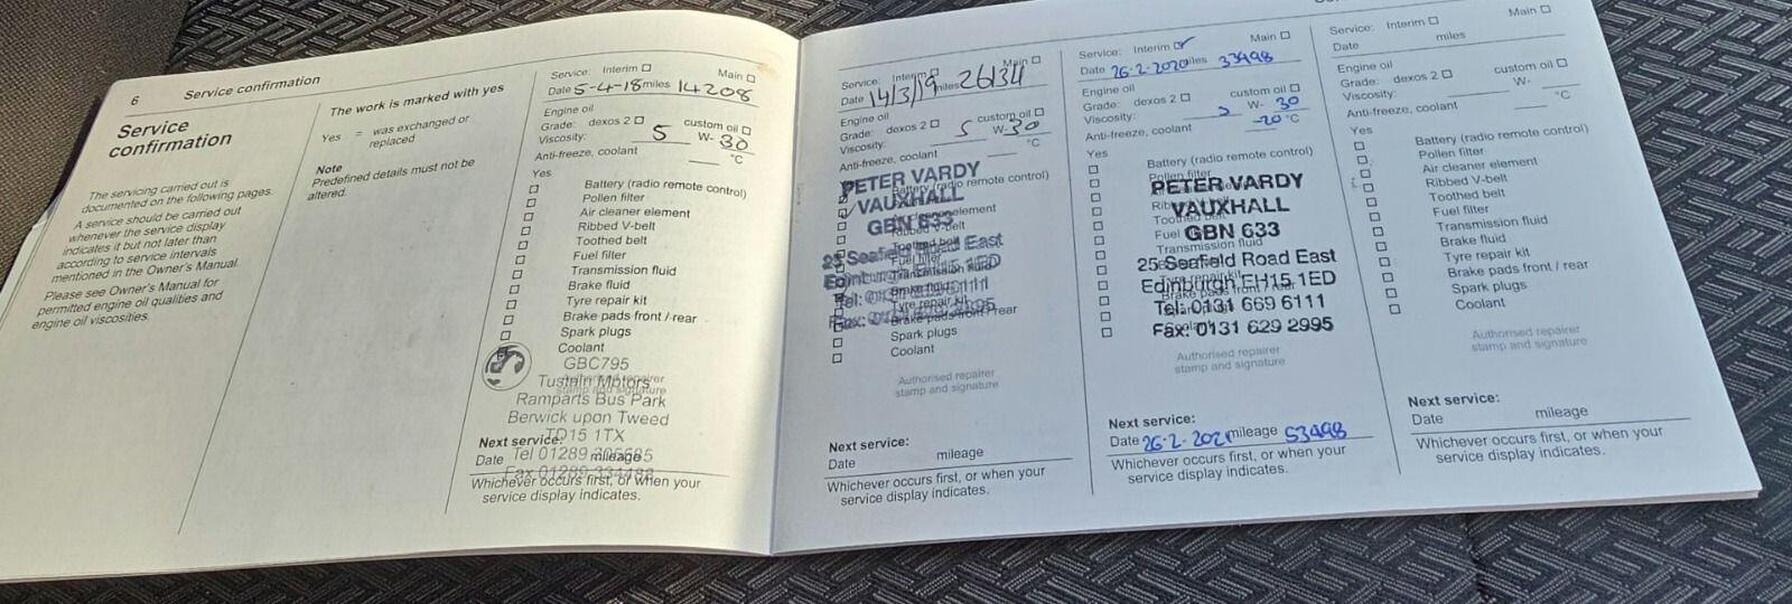 6 Service confirmation
Service
confirmation
The servicing carried out is
documented on the following pages.
A service should be carried out
whenever the service display
indicates it but not later than
according to service intervals
mentioned in the Owner's Manual.
Please see Owner's Manual for
permitted engine oil qualities and
engine oil viscosities.
The work is marked with yes
Yes = was exchanged or
replaced
Note
Predefined details must not be
altered.
Service: Interim Main
Date 5-4-18 miles 14208
Engine oil
Grade: dexos 2 custom oil
Viscosity: 5 W- 30
Anti-freeze, coolant °C
Yes
Battery (radio remote control)
Pollen filter
Air cleaner element
Ribbed V-belt
Toothed belt
Fuel filter
Transmission fluid
Brake fluid
Tyre repair kit
Brake pads front / rear
Spark plugs
Coolant
GBC795
Tustain Motors
Authorised repairer
stamp and signature
Ramparts Bus Park
Berwick upon Tweed
TD15 1TX
Next service:
Tel 01289
Date mileage
Fax 01289 334488
Whichever occurs first, or when your
service display indicates.
Service: Interim Main
Date 14/3/19 miles 26134
Engine oil
Grade: dexos 2 custom oil
Viscosity: 5 W-30
Anti-freeze, coolant °C
PETER VARDY
Battery (radio remote control)
VAUXHALL
element
GBN 633
Ribbed V-belt
Toothed belt
25 Seafield East
Fuel filter
Edinburgh EH15 1ED
Transmission fluid
Brake fluid
Tel:
Tyre repair kit
Fax:
Brake pads front / rear
Spark plugs
Coolant
Authorised repairer
stamp and signature
Next service:
Date mileage
Whichever occurs first, or when your
service display indicates.
Service: Interim Main
Date 26-2-2020 miles 33498
Engine oil
Grade: dexos 2 custom oil
Viscosity: 5 W- 30
Anti-freeze, coolant -20 °C
Yes
Battery (radio remote control)
Pollen filter
PETER VARDY
VAUXHALL
Toothed belt
Fuel
GBN 633
Transmission fluid
25 Seafield Road East
Edinburgh EH15 1ED
Brake pads front
Tel: 0131 669 6111
Fax: 0131 629 2995
Authorised repairer
stamp and signature
Next service:
Date 26-2-2021 mileage 53498
Whichever occurs first, or when your
service display indicates.
Service: Interim Main
Date miles
Engine oil
Grade: dexos 2 custom oil
Viscosity: W-
Anti-freeze, coolant °C
Yes
Battery (radio remote control)
Pollen filter
Air cleaner element
Ribbed V-belt
Toothed belt
Fuel filter
Transmission fluid
Brake fluid
Tyre repair kit
Brake pads front / rear
Spark plugs
Coolant
Authorised repairer
stamp and signature
Next service:
Date mileage
Whichever occurs first, or when your
service display indicates.